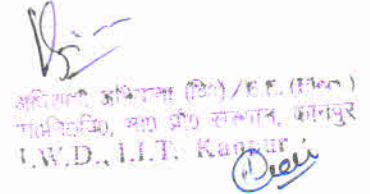 अधिशासी अभियन्ता (वि०) / E.E. (Elect.)
भा० प्रौ० संस्थान, कानपुर
I.W.D., I.I.T. Kanpur